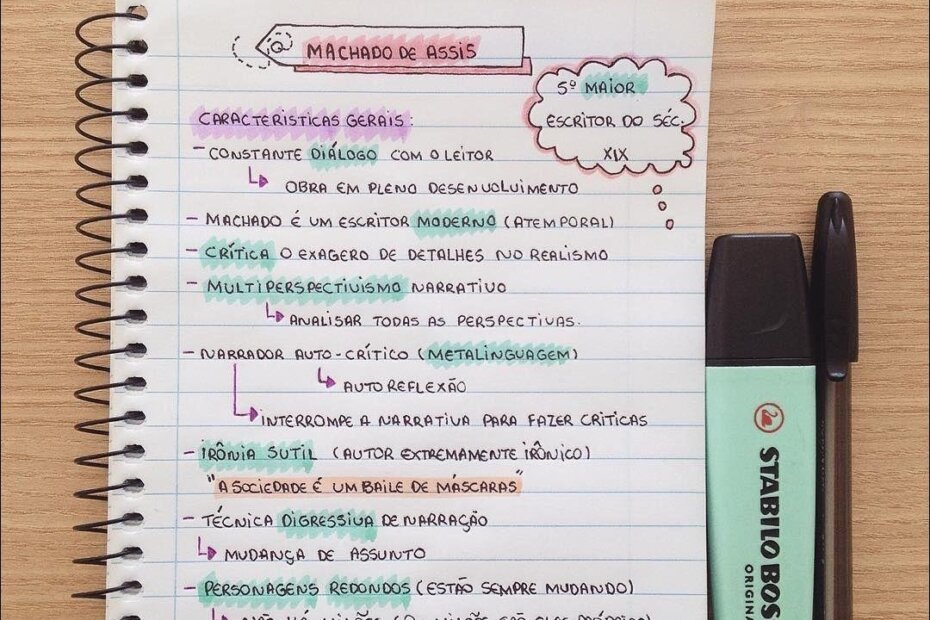 MACHADO DE ASSIS
5º MAIOR
ESCRITOR DO SÉC.
XIX
CARACTERISTICAS GERAIS:
- CONSTANTE DIÁLOGO COM O LEITOR
OBRA EM PLENO DESENVOLVIMENTO
- MACHADO É UM ESCRITOR MODERNO (ATEMPORAL)
- CRÍTICA O EXAGERO DE DETALHES NO REALISMO
- MULTIPERSPECTIVISMO NARRATIVO
ANALISAR TODAS AS PERSPECTIVAS.
- NARRADOR AUTO-CRÍTICO (METALINGUAGEM)
AUTO REFLEXÃO
INTERROMPE A NARRATIVA PARA FAZER CRITICAS
- IRÔNIA SUTIL (AUTOR EXTREMAMENTE IRÔNICO)
"A SOCIEDADE É UM BAILE DE MÁSCARAS"
- TÉCNICA DIGRESSIVA DE NARRAÇÃO
MUDANÇA DE ASSUNTO
- PERSONAGENS REDONDOS (ESTÃO SEMPRE MUDANDO)
NÃO HÁ
STABILO BOS
ORIGINA